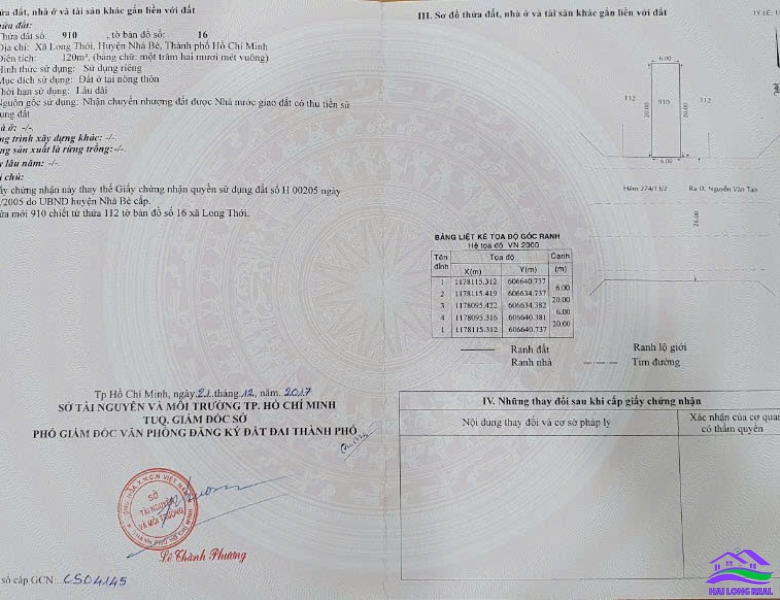 ửa đất, nhà ở và tài sản khác gắn liền với đất
ửa đất:
Thửa đất số: 910 , tờ bản đồ số: 16
Địa chỉ: Xã Long Thới, Huyện Nhà Bè, Thành phố Hồ Chí Minh
Diện tích: 120m², (bằng chữ: một trăm hai mươi mét vuông)
Hình thức sử dụng: Sử dụng riêng
Mục đích sử dụng: Đất ở tại nông thôn
Thời hạn sử dụng: Lâu dài
Nguồn gốc sử dụng: Nhận chuyển nhượng đất được Nhà nước giao đất có thu tiền sử
ụng đất
à ở: -/-.
ng trình xây dựng khác: -/-.
ng sản xuất là rừng trồng:-/-.
y lâu năm: -/-.
i chú:
ấy chứng nhận này thay thế Giấy chứng nhận quyền sử dụng đất số H 00205 ngày
/2005 do UBND huyện Nhà Bè cấp.
ửa mới 910 chiết từ thửa 112 tờ bản đồ số 16 xã Long Thới.
Tp Hồ Chí Minh, ngày 21 tháng 12 năm 2017
SỞ TÀI NGUYÊN VÀ MÔI TRƯỜNG TP. HỒ CHÍ MINH
TUQ. GIÁM ĐỐC SỞ
PHÓ GIÁM ĐỐC VĂN PHÒNG ĐĂNG KÝ ĐẤT ĐAI THÀNH PHỐ
SỞ
TÀI NGUYÊN
VÀ MÔI TRƯỜNG
Lê Thành Phương
số cấp GCN: CS04145
III. Sơ đồ thửa đất, nhà ở và tài sản khác gắn liền với đất
6.00
112
20.00
910
20.00
112
6.00
Hẻm 274/15/2
Ra Đ. Nguyễn Văn Tạo
BẢNG LIỆT KÊ TỌA ĐỘ GÓC RANH
Hệ tọa độ VN 2000
Tên đỉnh Tọa độ Cạnh
X(m) Y(m) (m)
1 1178115.312 606640.737
6.00
2 1178115.419 606634.737
20.00
3 1178095.422 606634.382
6.00
4 1178095.316 606640.381
20.00
1 1178115.312 606640.737
Ranh đất Ranh lộ giới
Ranh nhà Tim đường
IV. Những thay đổi sau khi cấp giấy chứng nhận
Nội dung thay đổi và cơ sở pháp lý
Xác nhận của cơ quan
có thẩm quyền
HAI LONG REAL